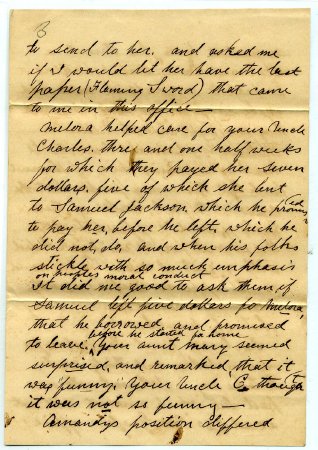 3
to send to her, and asked me
if I would let her have the last
paper (Flaming Sword) that came
to me in this office—
Melora helped care for your Uncle
Charles, three and one half weeks
for which they payed her seven
dollars, five of which she lent
to Samuel Jackson, which he promised
to pay her, before he left, which he
did not, do, and when his folks
stickle with so much emphasis
on peoples moral conduct
it did me good to ask them, if
Samuel left five dollars fo Melora,
that he borrowed, and promised
before he started for home
to leave. Your aunt Mary seemed
surprised, and remarked that it
was funny: Your Uncle C. thought
it was not so funny—
Amandys position differed